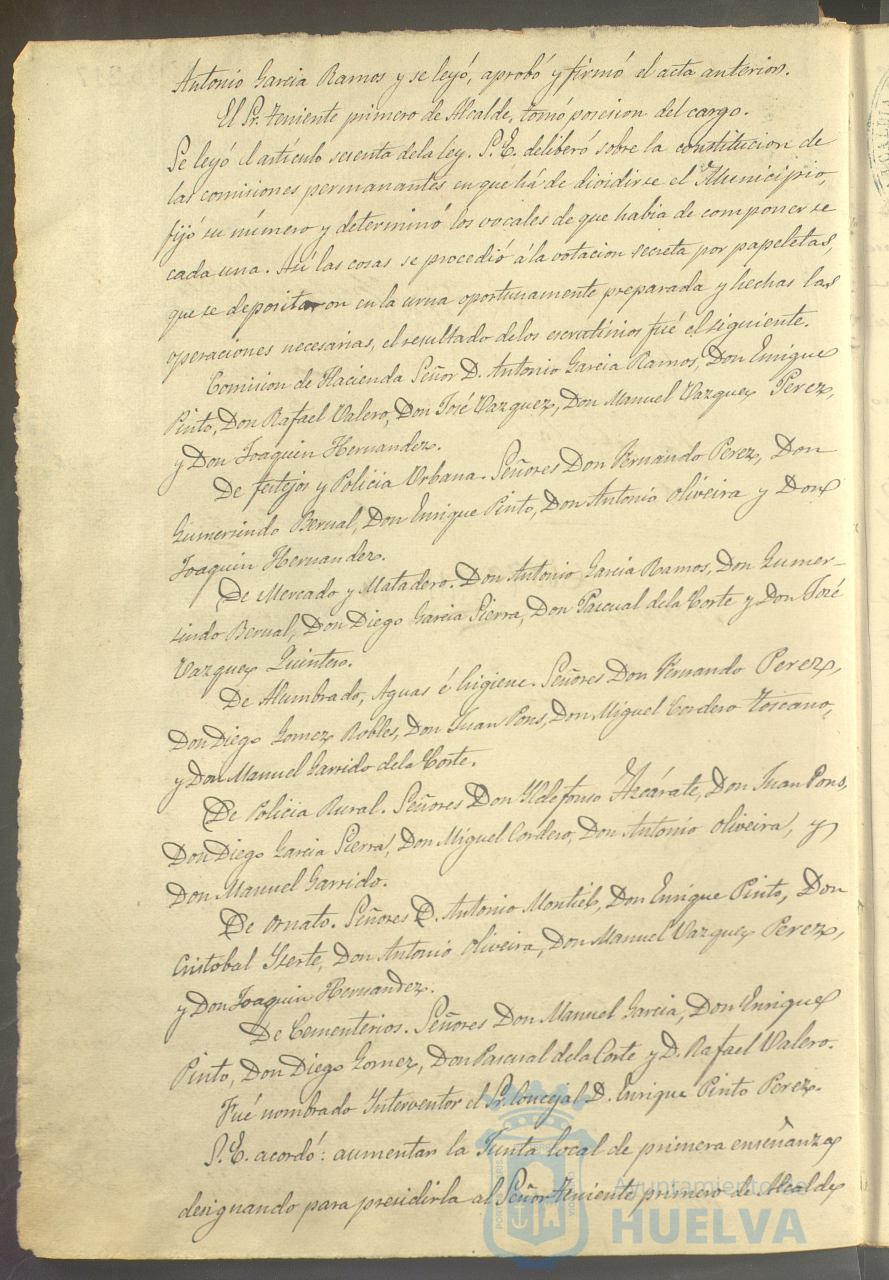 Antonio Garcia Ramos y se leyó, aprobó y firmó el acta anterior.
El Sr. Teniente primero de Alcalde, tomó posesion del cargo.
Se leyó el artículo sesenta de la ley. S.E. deliberó sobre la constitucion de
las comisiones permanantes en que há de dividirse el Municipio,
fijó su número y determinó los vocales de que habia de componerse
cada una. Así las cosas se procedió á la votacion secreta por papeletas,
que se depositaron en la urna oportunamente preparada y hechas las
operaciones necesarias, el resultado de los escrutinios fué el siguiente.
Comision de Hacienda Señor D. Antonio Garcia Ramos, Don Enrique
Pinto, Don Rafael Valero, Don José Vazquez, Don Manuel Vazquez Perez,
y Don Joaquin Hernandez.
De festejos y Policia Urbana. Señores Don Fernando Perez, Don
Gumersindo Bernal, Don Enrique Pinto, Don Antonio Oliveira y Don
Joaquin Hernandez.
De Mercado y Matadero. Don Antonio Garcia Ramos, Don Gumer-
sindo Bernal, Don Diego Garcia Sierra, Don Pascual de la Corte y Don José
Vazquez Quintero.
De Alumbrado, Aguas é higiene. Señores Don Fernando Perez,
Don Diego Gomez Robles, Don Juan Pons, Don Miguel Cordero Toscano,
y Don Manuel Garrido de la Corte.
De Policia Rural. Señores Don Yldefonso Azcárate, Don Juan Pons,
Don Diego Garcia Sierra, Don Miguel Cordero, Don Antonio Oliveira, y
Don Manuel Garrido.
De Ornato. Señores D. Antonio Montiel, Don Enrique Pinto, Don
Cristobal Yserte, Don Antonio Oliveira, Don Manuel Vazquez Perez,
y Don Joaquin Hernandez.
De Cementerios. Señores Don Manuel Garcia, Don Enrique
Pinto, Don Diego Gomez, Don Pascual de la Corte y D. Rafael Valero.
Fué nombrado Interventor el Sr. Concejal D. Enrique Pinto Perez.
S.E. acordó: aumentar la Junta local de primera enseñanza
designando para presidirla al Señor Teniente primero de Alcalde
Ayuntamiento de
HUELVA